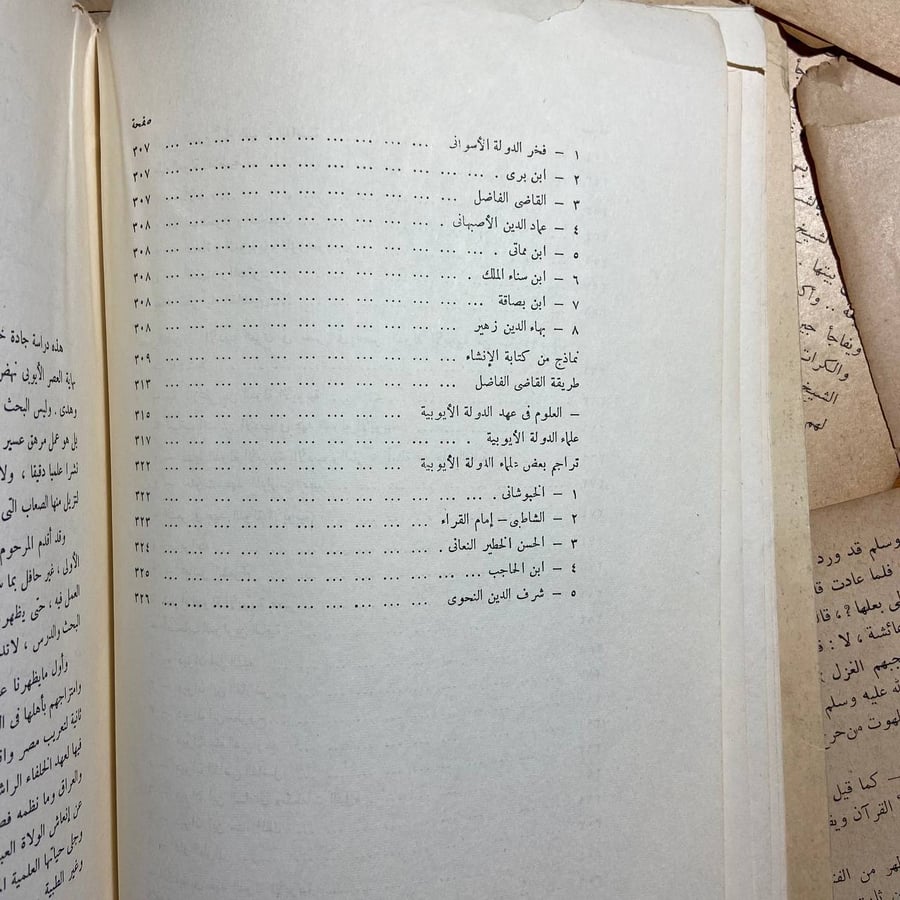 صفحة
١ — فخر الدولة الأسوانى ... ... ... ... ... ... ... ... ... ... ٣٠٧
٢ — ابن برى . ... ... ... ... ... ... ... ... ... ... ... ٣٠٧
٣ — القاضى الفاضل ... ... ... ... ... ... ... ... ... ... ... ٣٠٧
٤ — عماد الدين الأصبهانى . ... ... ... ... ... ... ... ... ... ... ٣٠٨
٥ — ابن مماتى . ... ... ... ... ... ... ... ... ... ... ... ٣٠٨
٦ — ابن سناء الملك . ... ... ... ... ... ... ... ... ... ... ... ٣٠٨
٧ — ابن بصاقة ... ... ... ... ... ... ... ... ... ... ... ... ٣٠٨
٨ — بهاء الدين زهير ... ... ... ... ... ... ... ... ... ... ... ٣٠٨
نماذج من كتابة الإنشاء ... ... ... ... ... ... ... ... ... ... ... ٣٠٩
طريقة القاضى الفاضل ... ... ... ... ... ... ... ... ... ... ... ٣١٣
— العلوم فى عهد الدولة الأيوبية ... ... ... ... ... ... ... ... ... ٣١٥
علماء الدولة الأيوبية . ... ... ... ... ... ... ... ... ... ... ... ٣١٧
تراجم بعض علماء الدولة الأيوبية ... ... ... ... ... ... ... ... ... ٣٢٢
١ — الخبوشانى . ... ... ... ... ... ... ... ... ... ... ... ٣٢٢
٢ — الشاطبى — إمام القراء ... ... ... ... ... ... ... ... ... ... ٣٢٣
٣ — الحسن الخطير النعمانى . ... ... ... ... ... ... ... ... ... ... ٣٢٤
٤ — ابن الحاجب ... ... ... ... ... ... ... ... ... ... ... ... ٣٢٥
٥ — شرف الدين النحوى ... ... ... ... ... ... ... ... ... ... ٣٢٦
هذه دراسة جادة
نهاية العصر الأيوبى نهض
وهدى . وليس البحث
بل هو عمل مرهق عسير
نشرا علميا دقيقا ، ولا
لتزيل منها الصعاب التى
وقد أقدم المرحوم
الأولى ، غير حافل بما
العمل فيه ، حتى يظهر
البحث والدرس ،
وأول مايظهرنا
وامتزاجهم بأهلها فى
ثانية لتعريب مصر
فيها لعهد الخلفاء
والعراق وما نظمه
عن إنعاش الولاة
وجلى حياتها العلمية
وغير الطبية
وسلم قد ورد
فلما عادت
بعلها ؟ ،
عائشة ، لا :
الغزل
عليه وسلم
— كما قيل
القرآن
من